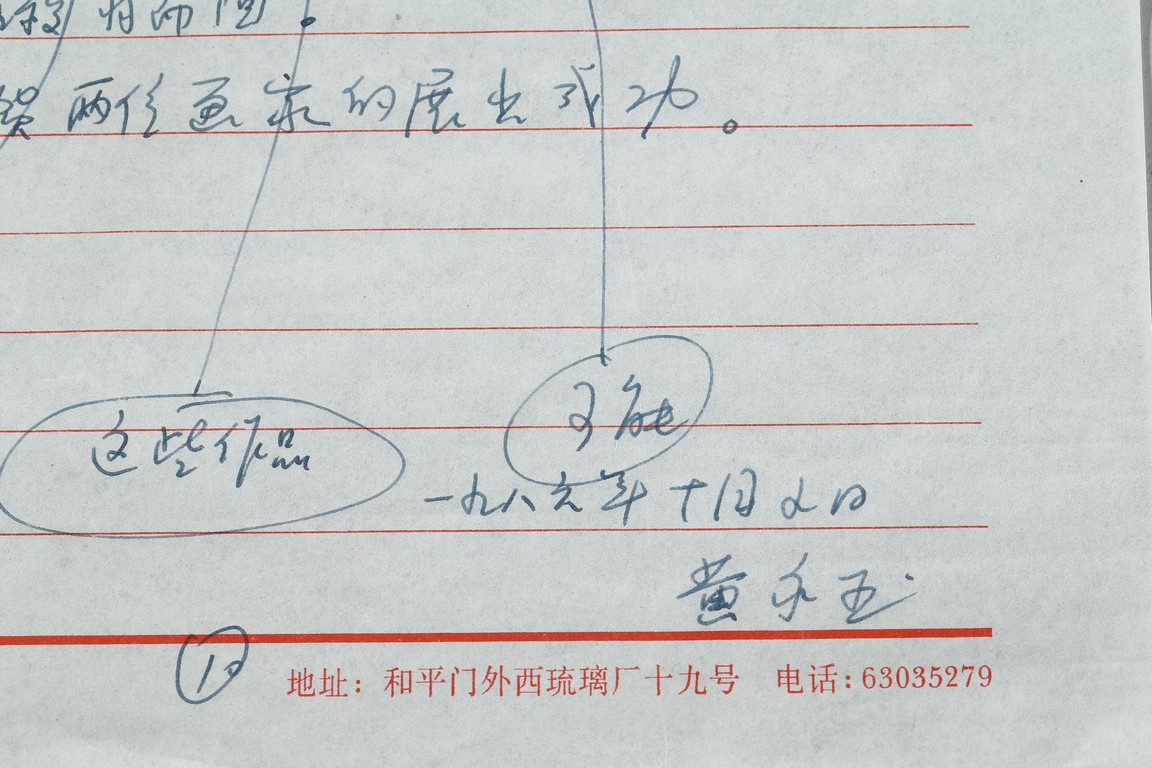 贺两位画家的展出成功。
这些作品
可能
一九八六年十月廿日
黄永玉
10
地址：和平门外西琉璃厂十九号 电话：63035279